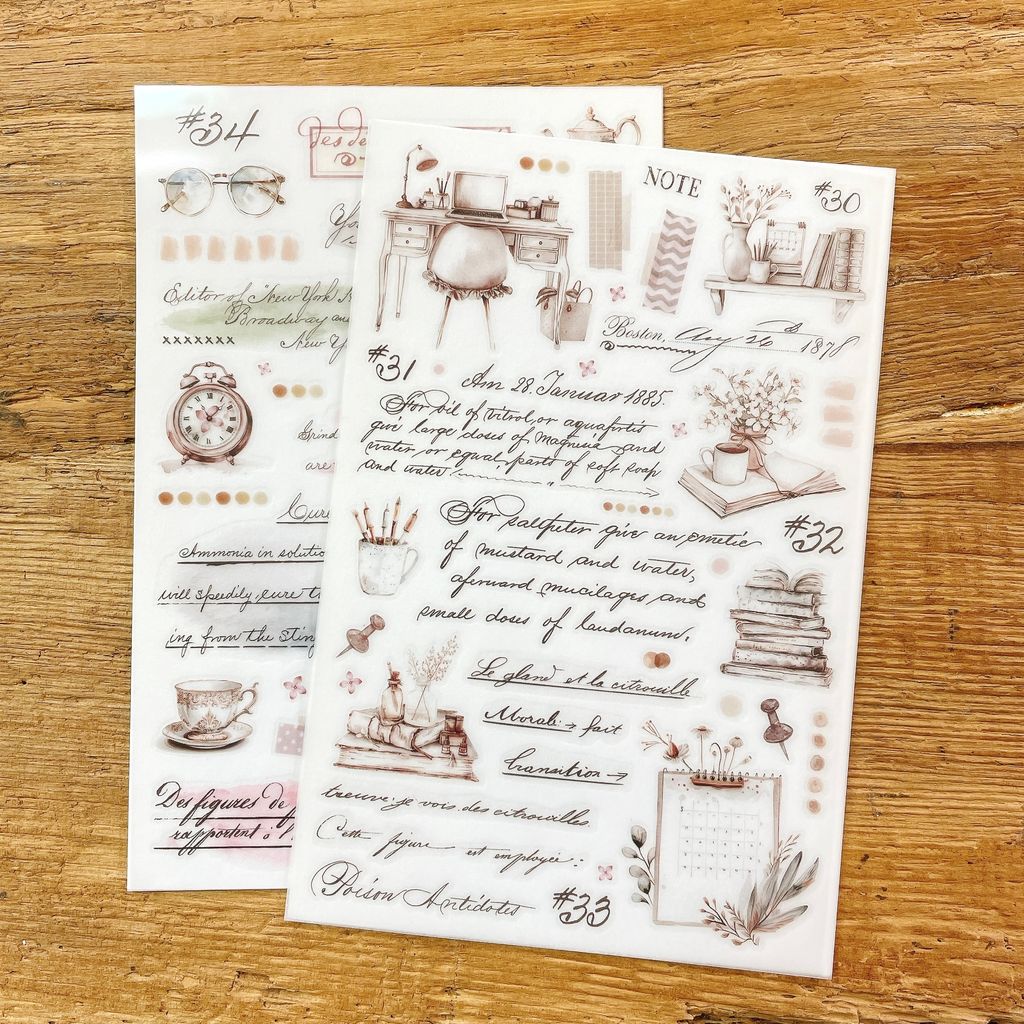 #34
des de
Editor of "New York
Broadway
New Y
Grind
are
Cure
Ammonia in solutio
will speedily cure t
ing from the Sting
Des figures de
rapportent à l'
NOTE
#30
Boston, Aug 26 1878
#31
Am 28. Januar 1885.
For oil of vitrol, or aquafortis
give large doses of Magnesia and
water, or equal parts of soft soap
and water
For saltpeter give an emetic
of mustard and water,
aferward mucilages and
small doses of laudanum.
#32
Le gland et la citrouille
Morale → fait
transition →
treuve je vois des citrouilles
Cette figure est employée :
Poison Antidotes
#33